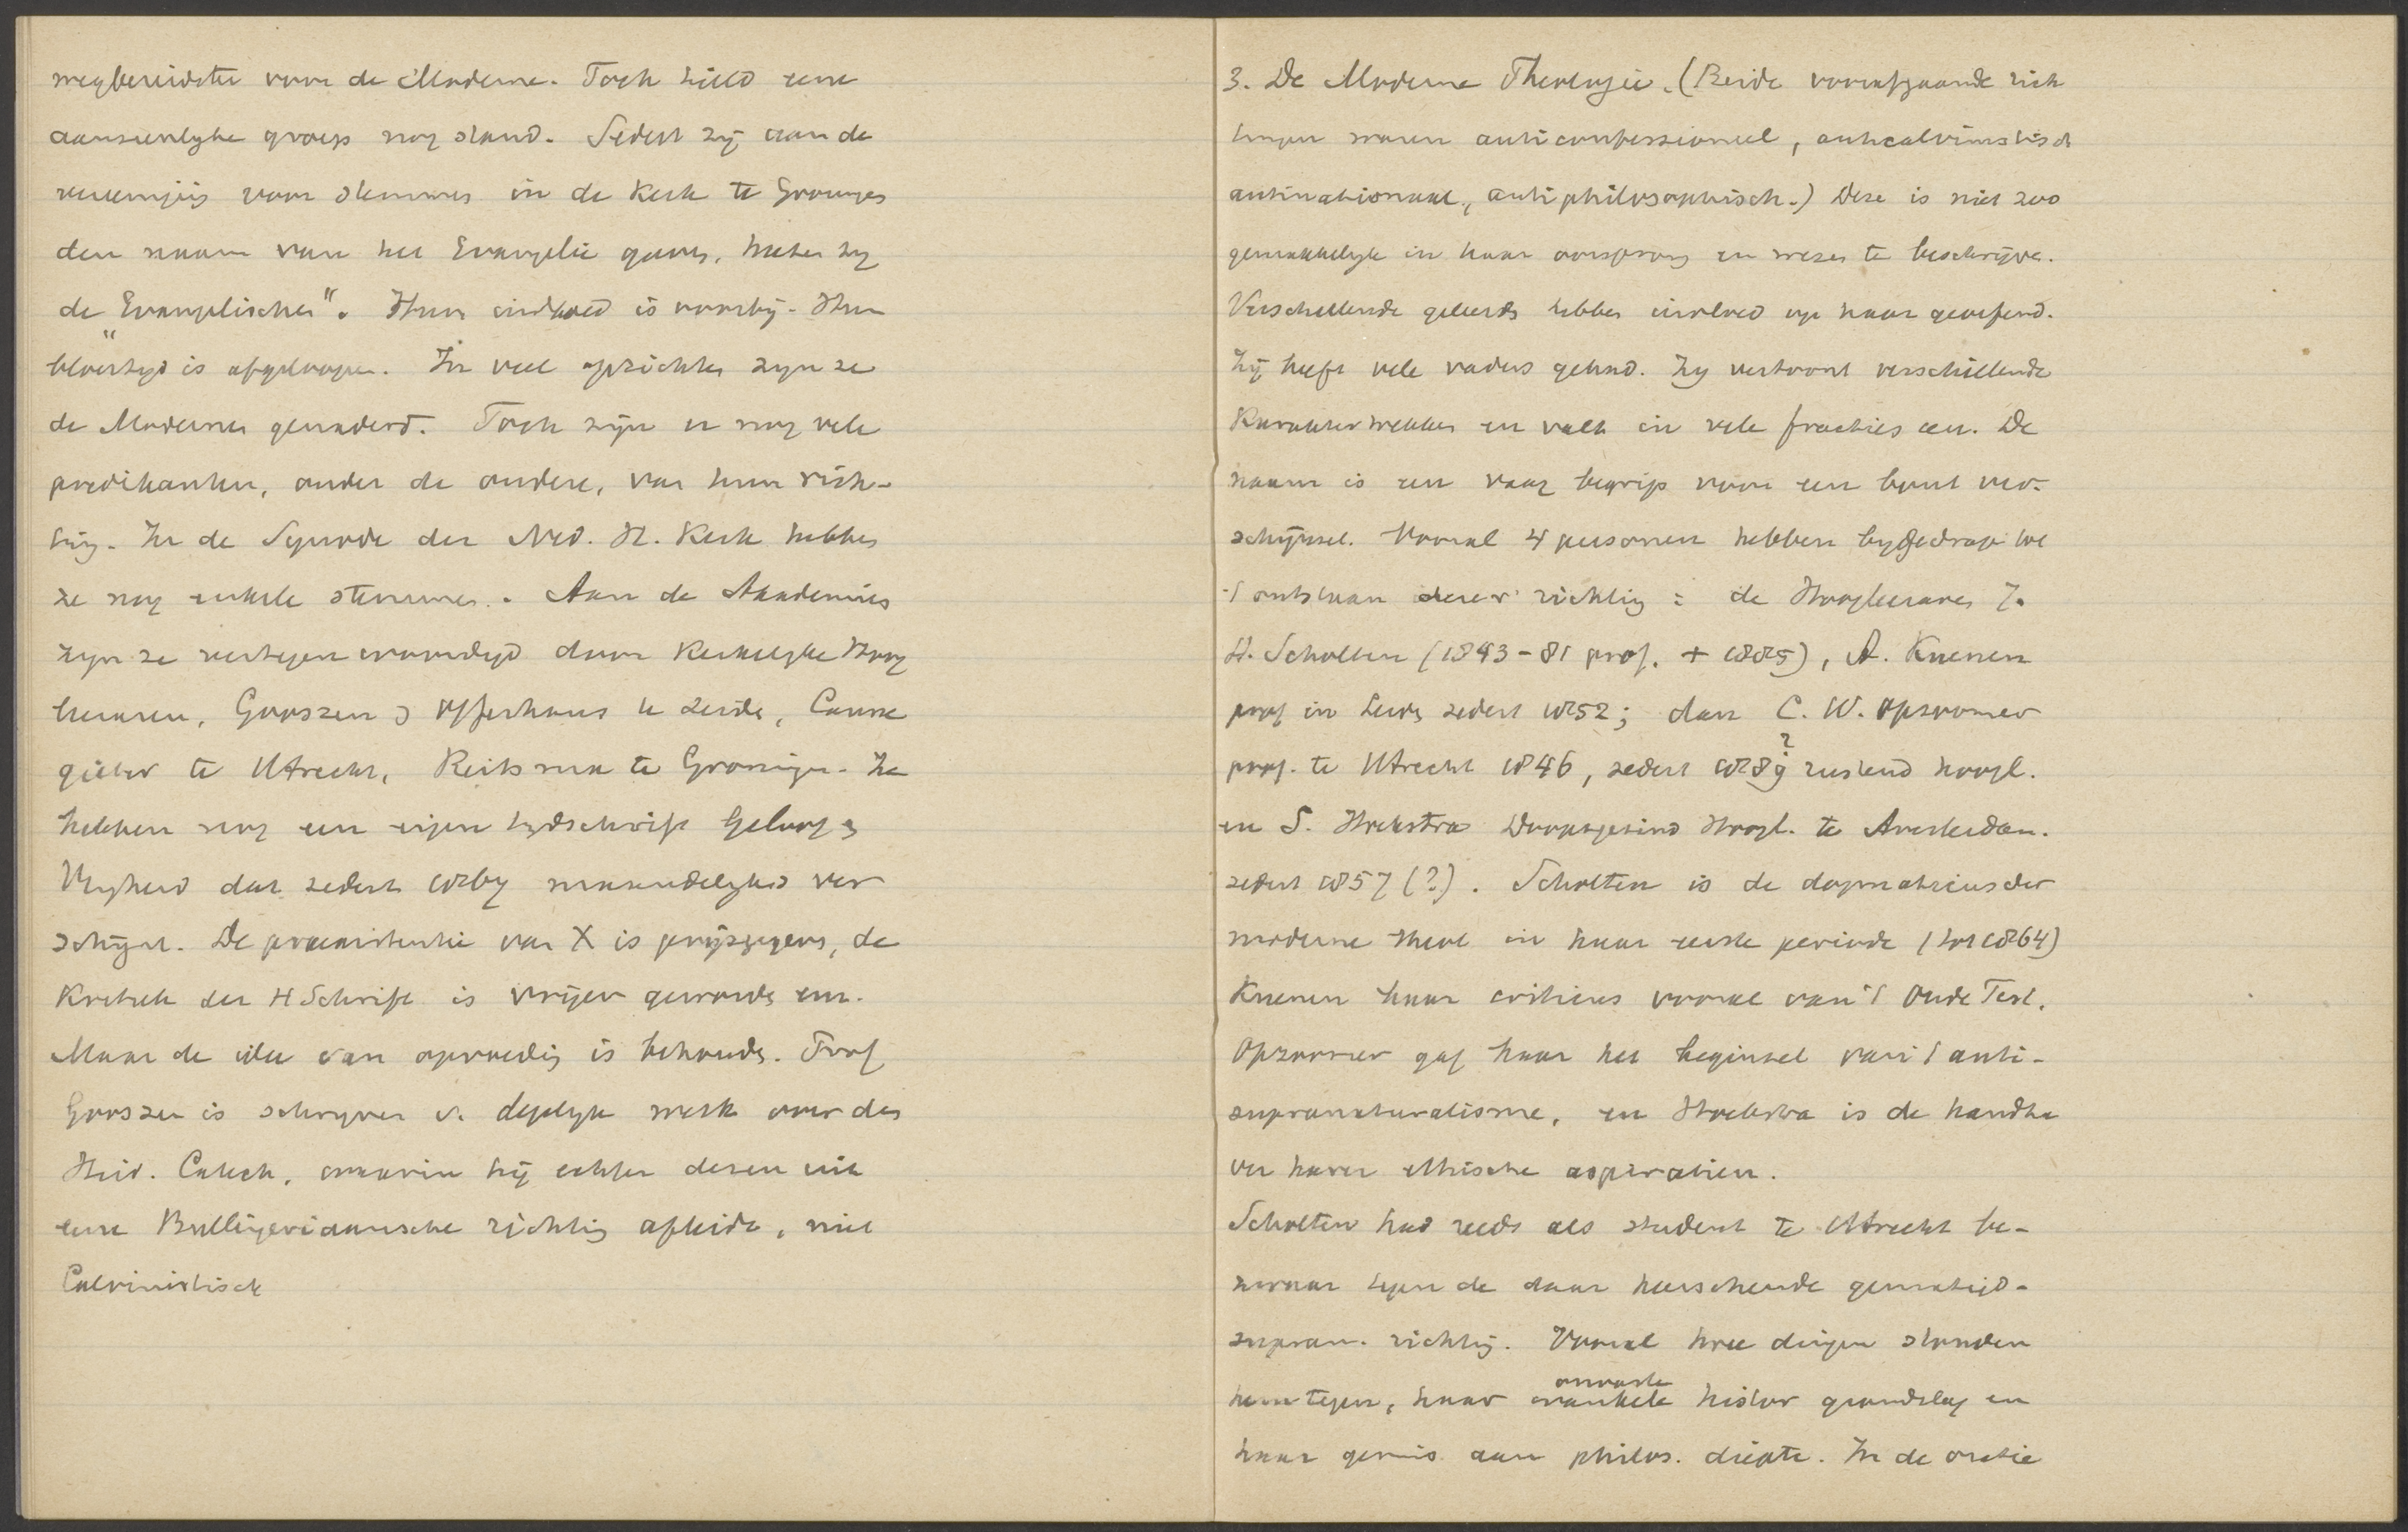 wegbereidster voor de Moderne. Toch hield eene
aanzienlyke groep nog stand. Sedert zij aan de
vereeniging voor stemmen in de Kerk te Groningen
den naam van het Evangelie gaven, heeten zy
de "Evangelischen". Hun invloed is voorbij. Hun
bloeityd is afgeloopen. In veel opzichten zyn ze
de Modernen genaderd. Toch zijn er nog vele
predikanten, onder de oudere, van hun rich-
ting. In de Synode der Ned. H. Kerk hebben
ze nog enkele stemmen. Aan de Akademies
zyn ze vertegenwoordigd door Kerkelyke Hoog
leeraren, Gooszen & Offerhaus te Leiden, Canne
gieter te Utrecht, Reitsma te Groningen. Ze
hebben nog een eigen tydschrift Geloof &
Vryheid dat sedert 1867 maandelyks ver
schijnt. De praeexistentie van X is prijsgegeven, de
Kritiek der H Schrift is vrijer geworden enz.
Maar de idee van opvoeding is behouden. Prof
Gooszen is schryver v. degelyk werk over den
Heid. Catech, waarin hij echter dezen uit
eene Bullingeriaansche richting afleidt, niet
Calvinistisch
3. De Moderne Theologie. (Beide voorafgaande rich
tingen waren anticonfessioneel, anticalvinistisch
antinationaal, antiphilosophisch.) Deze is niet zoo
gemakkelyk in haar oorsprong en wezen te beschrijven.
Verschillende geleerden hebben invloed op haar geoefend.
Zij heeft vele vaders gehad. Zy vertoont verschillende
Karaktertrekken en valt in vele fracties uiteen. De
naam is een vaag begrip voor een bont ver-
schijnsel. Vooral 4 personen hebben bygedragen tot
't ontstaan dezer richting: de Hoogleeraren J.
H. Scholten (1843-81 prof. + 1885), A. Kuenen
prof in Leiden sedert 1852; dan C. W. Opzoomer
prof. te Utrecht 1846, sedert 1889? rustend hoogl.
en S. Hoekstra Doopsgezind Hoogl. te Amsterdam.
sedert 1857 (?). Scholten is de dogmaticus der
moderne theol in haar eerste periode (tot 1864)
Kuenen haar criticus vooral van 't Oude Test.
Opzoomer gaf haar het beginsel van 't anti-
supranaturalisme, en Hoekstra is de handha
ver harer ethische aspiratien.
Scholten had reeds als student te Utrecht be-
zwaar tegen de daar heerschende gematigd-
supran. richting. Vooral twee dingen stonden
hem tegen, haar onvaste wankele histor grondslag en
haar gemis aan philos. diepte. In de oratie